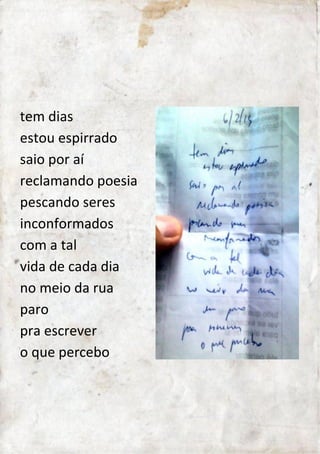 tem dias
estou espirrado
saio por aí
reclamando poesia
pescando seres
inconformados
com a tal
vida de cada dia
no meio da rua
paro
pra escrever
o que percebo
6/2/15
tem dias
estou espirrado
saio por aí
reclamando poesia
pescando seres
inconformados
com a tal
vida de cada dia
no meio da rua
eu paro
pra escrever
o que percebo